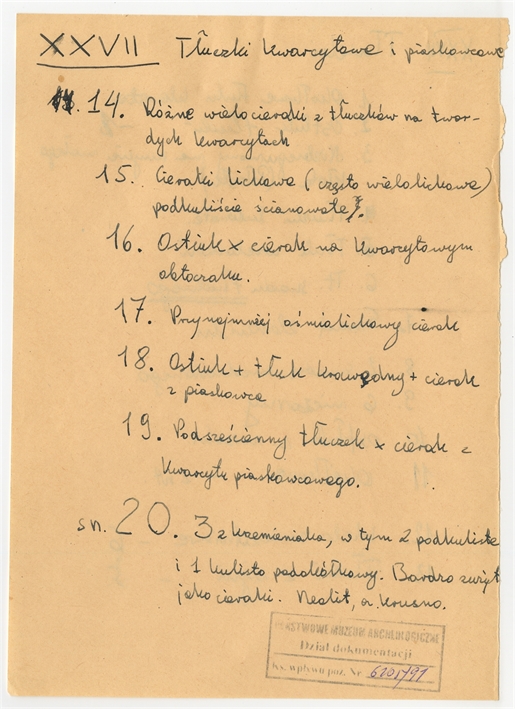 XXVII Tłuczki kwarcytowe i piaskowcowe
14. Różne wielocieraki z tłuczków na twar-
dych kwarcytach
15. Cieraki lickowe (często wielolickowe)
podkuliście ścianowate).
16. Ostiuk x cierak na kwarcytowym
obtoczaku.
17. Przynajmniej ośmiolickowy cierak
18. Ostiuk + tłuk krawędny + cierak
z piaskowca
19. Podsześcienny tłuczek x cierak z
kwarcytu piaskowcowego.
sn. 20. 3 z krzemieniaka, w tym 2 podkuliste
i 1 kulisto podokółkowy. Bardzo zużyt
jako cieraki. Neolit, a. krusno.
PAŃSTWOWE MUZEUM ARCHEOLOGICZNE
Dział dokumentacji
ks. wpływu poz. Nr